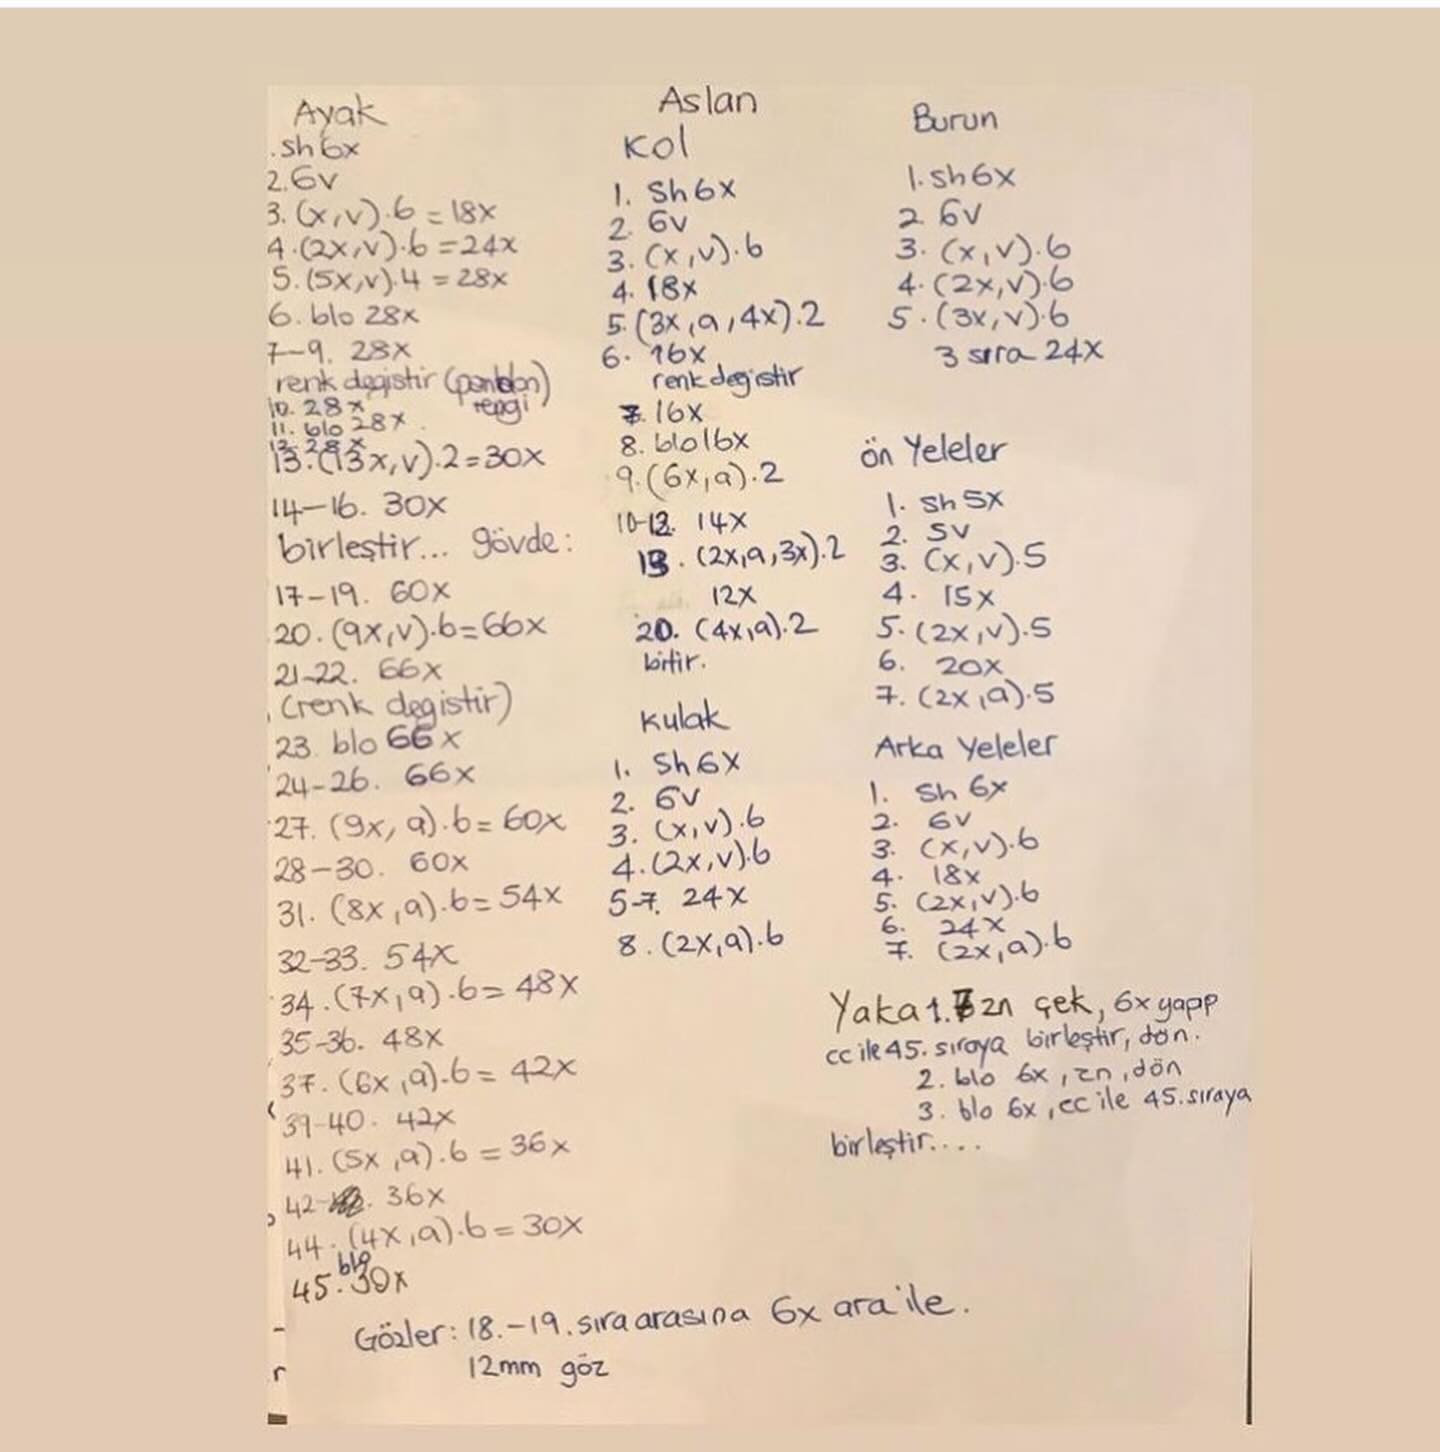 Aslan
Ayak
.sh 6x
2.6v
3. (x,v).6 = 18x
4.(2x,v).6 = 24x
5.(5x,v).4 = 28x
6. blo 28x
7-9. 28x
renk degistir (pantolon)
rengi
10. 28x
11. blo 28x.
12. 28x
13.(13x,v).2=30x
14-16. 30x
birleştir... gövde:
17-19. 60x
20.(9x,v).6=66x
21-22. 66x
(renk degistir)
23. blo 66x
24-26. 66x
27. (9x, a).6= 60x
28-30. 60x
31. (8x,a).6= 54x
32-33. 54x
34.(7x,a).6= 48x
35-36. 48x
37.(6x,a).6= 42x
39-40. 42x
41.(5x,a).6 = 36x
42- . 36x
44.(4x,a).6 = 30x
blo
45. 30x
Gözler: 18.-19.sıra arasına 6x ara ile.
12mm göz
Kol
1. Sh 6x
2. 6v
3. (x,v).6
4. 18x
5.(3x,a,4x).2
6. 16x
renk degistir
7. 16x
8. blo 16x
9.(6x,a).2
10-12. 14x
13. (2x,a,3x).2
12x
20. (4x,a).2
bitir.
Kulak
1. Sh 6x
2. 6v
3. (x,v).6
4.(2x,v).6
5-7. 24x
8.(2x,a).6
Burun
1.sh 6x
2 6v
3. (x,v).6
4.(2x,v).6
5.(3x,v).6
3 sıra 24x
ön Yeleler
1. Sh 5x
2. 5v
3. (x,v).5
4. 15x
5.(2x,v).5
6. 20x
7.(2x,a).5
Arka Yeleler
1. Sh 6x
2. 6v
3. (x,v).6
4. 18x
5. (2x,v).6
6. 24x
7. (2x,a).6
Yaka 1.7 zn çek, 6x yapp
cc ile 45. sıraya birleştir, dön.
2. blo 6x, zn, dön
3. blo 6x, cc ile 45.sıraya
birleştir....